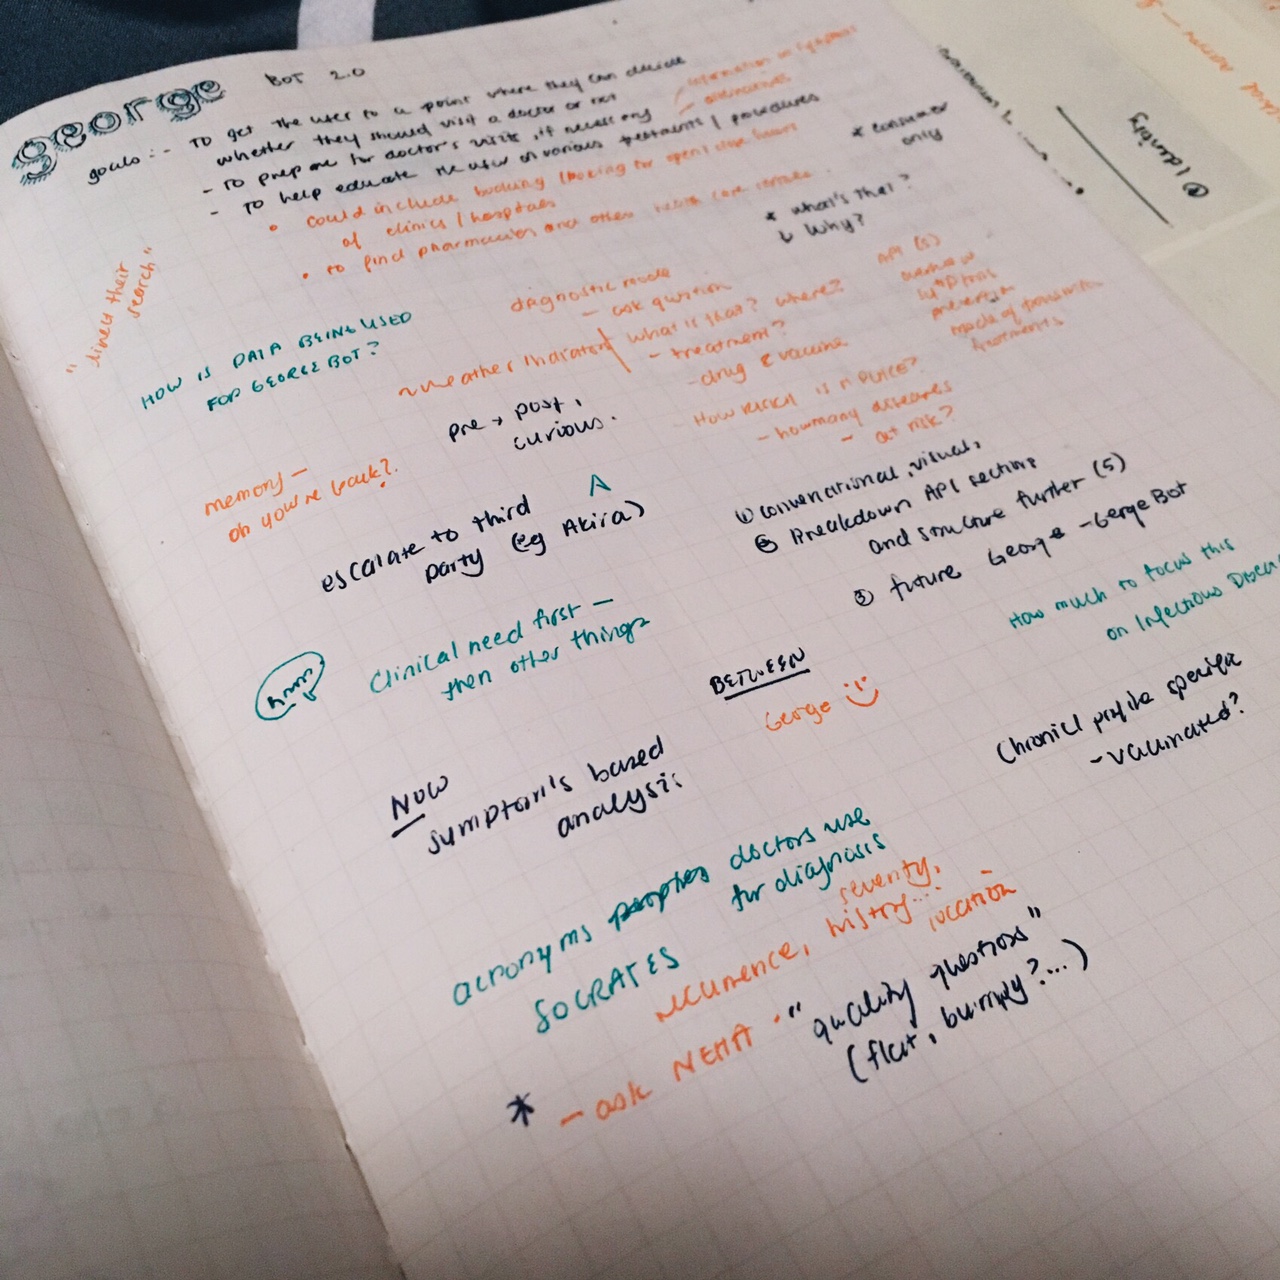 george BOT 2.0
goals: - TO get the user to a point where they can decide
whether they should visit a doctor or not
- TO prep me for doctor's visits, if necessary
- TO help educate the user on various treatments / procedures
- information on symptoms
- alternatives
• could include booking / looking for open / close hours
of clinics / hospitals
• to find pharmacies and other health care
* consumer
only
* what's that?
↓ Why?
"direct their
search"
HOW IS DATA BEING USED
FOR GEORGE BOT?
diagnostic mode
- ask question
~weather indicators
what is that? where?
- treatment?
- drug & vaccine
API (s)
symptoms
prevention
mode of transmission
treatments
pre + post,
curious.
How is n
- how many diseases
- at risk?
memory -
oh you're back?
escalate to third
party (eg Akira)
A
① convernational, visual,
Breakdown API sections
and structure further (5)
③ future George - GergeBot
How much to focus this
on Infectious Disea
hmm
Clinical need first -
then other things
BETWEEN
George
Chronicl profile specific
- vaccinated?
NOW
symptom's based
analysis
acronyms peoples doctors use
for diagnosis
SOCRATES
severity,
recurrence, history... location
* - ask NEHA · "quality questions"
(flat, bumpy?...)
② Identity